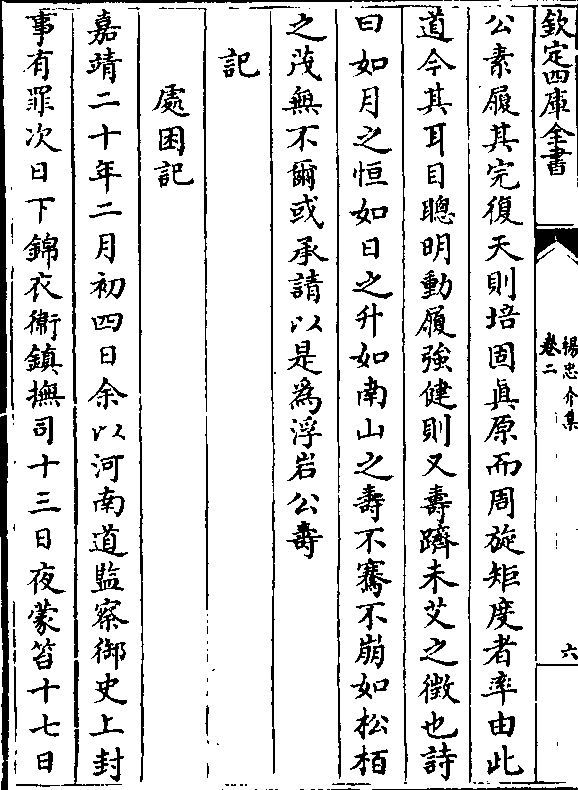 欽定四庫全書
楊忠介集
卷二
六
公素履其完復天則培固真原而周旋矩度者率由此
道今其耳目聰明動履強健則又壽躋未艾之徵也詩
曰如月之恒如日之升如南山之壽不騫不崩如松栢
之茂無不爾或承請以是為浮岩公壽
記
處困記
嘉靖二十年二月初四日余以河南道監察御史上封
事有罪次日下錦衣衛鎮撫司十三日夜蒙笞十七日